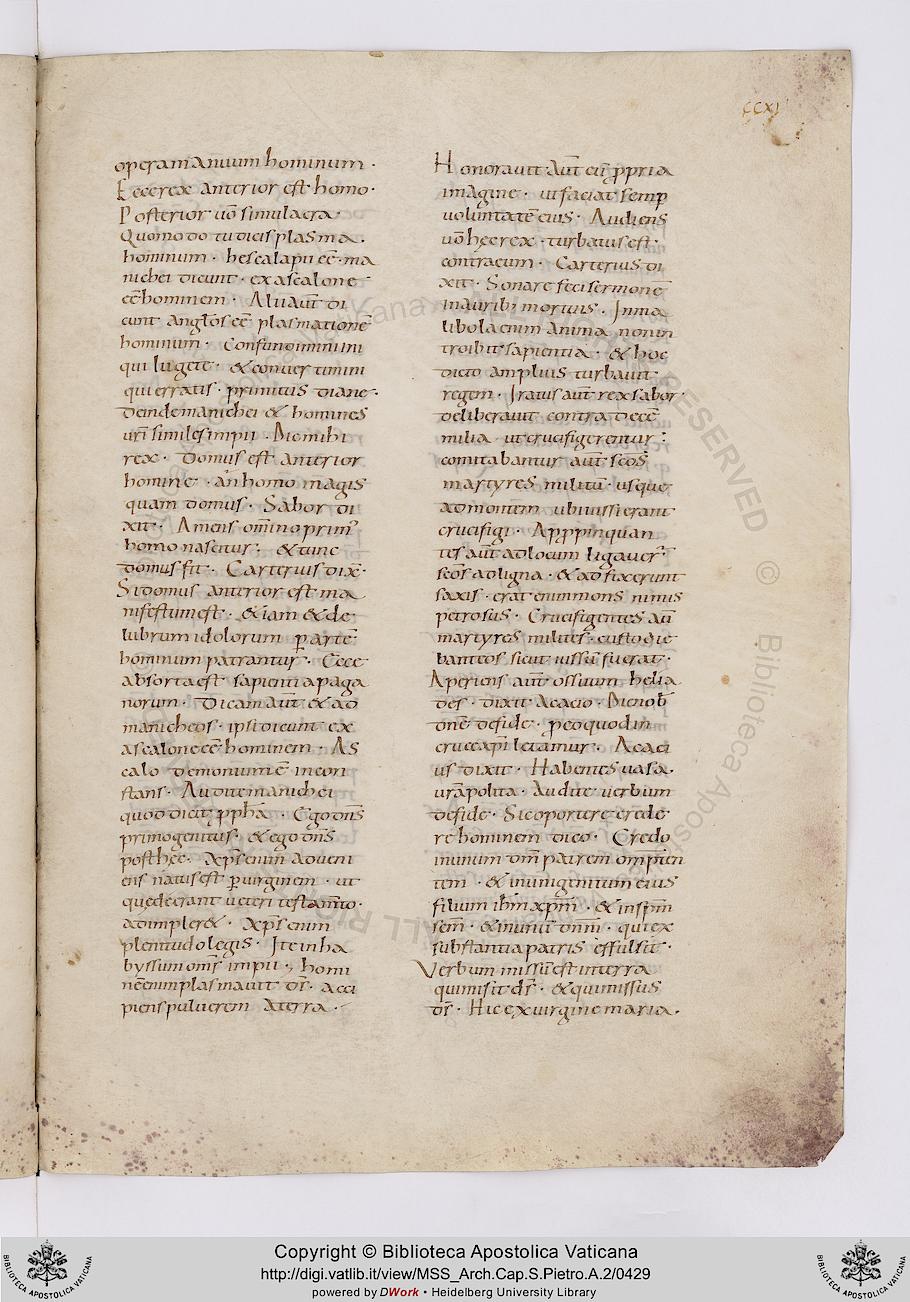 CCXI
operam anuum hominum ·
Ecce rex anterior est homo ·
Posterior uo simulacra ·
Quomodo tu dicis plasma ·
hominum · hescalapii eē · ma
nichei dicunt · ex ascalone
eē hominem · Alii aut̄ di
cunt anglos eē plasmatione
hominum · Confundimini
qui lugetis · & conuertimini
qui erratis · primitus diane ·
deinde manichei & homines
urī similes impii · Dic mihi
rex · Domus est anterior
homine · an homo magis
quam domus · Sabor di
xit · Amens omīno prim'
homo nascitur · & tunc
domus fit · Carterius dix̄ ·
Si domus anterior est ma
nifestum est · & iam & de
lubrum idolorum p arte
hominum patrantur · Ecce
absorta est sapientia paga
norum · Dicam aut̄ & ad
manicheos · ipsi dicunt ex
ascalone eē hominem · As
calo demonium ē incon
stans · Audite manichei
quod dicit ppha · Ego dn̄s
primogenitus · & ego dn̄s
post hęc · xp̄s enim adueni
ens natus est p uirginem · ut
quedeerant ueteri testamto ·
adimpler& · xp̄s enim
plenitudo legis · Ite in ha
byssum oms̄ impii · homi
nē enim plasmauit ds̄ · acci
piens puluerem a terra ·
Honorauit aut̄ eū ppria
imagine · ut faciat semp
uoluntatē eius · Audiens
uo hęc rex · turbatus est ·
contra eum · Carterius di
xit · Sonare feci sermonē
in aurib; mortuis · In ma
libola enim anima non in
troibit sapientia · & hoc
dicto amplius turbauit
regem · Iratus aut̄ rex sabor
deliberauit contra decē
milia · ut crucifigerentur :
comitabantur aut̄ scōs
martyres militū · usque
ad montem ubi iussi erant
crucifigi · Apppinquan
tes aut̄ ad locum ligauer̄
scōs ad ligna · & adfixerunt
saxis · erat enim mons nimis
petrosus · Crucifigentes aū
martyres milites · custodie
bant eos sicut iussū fuerat ·
Aperiens aut̄ os suum helia
des · dixit Acacio · Dic nob̄
dnē de fide · p eo quod in
cruce ap̄i letamur · Acaci
us dixit · Habentes uasa ·
urā polita · Audite uerbum
de fide · Sic oportere crede
re hominem dico · Credo
in unum dm̄ patrem omp̄ten
tem · & in unigenitum eius
filium ihm̄ xpm̄ · & in spm̄
scm̄ · & in unū dnm̄ · qui ex
substantia patris effulsit ·
Verbum missū est in terra
qui misit ds̄ · & qui missus
ds̄ · Hic ex uirgine maria ·
Copyright © Biblioteca Apostolica Vaticana
http://digi.vatlib.it/view/MSS_Arch.Cap.S.Pietro.A.2/0429
powered by DWork • Heidelberg University Library